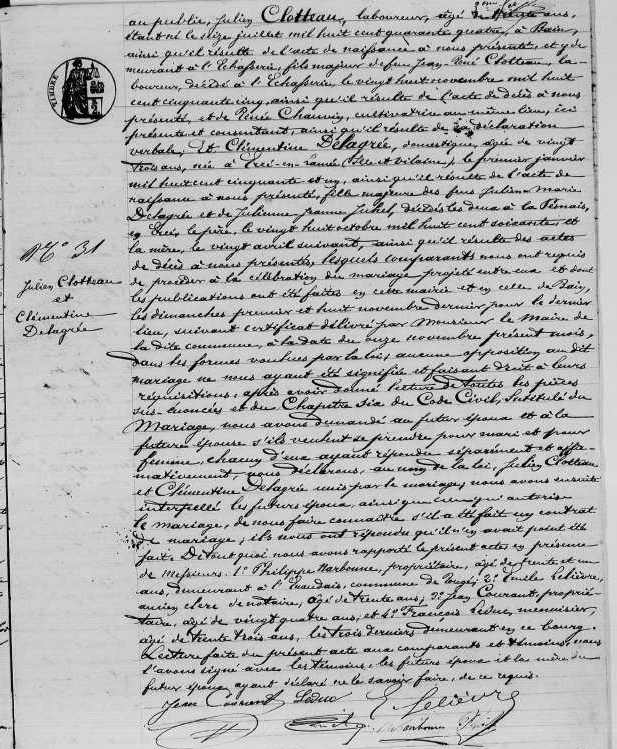 au public, Julien Clotteau, laboureur, âgé de trente ans,
étant né le seize juillet mil huit cent quarante quatre, à Bain,
ainsi qu'il résulte de l'acte de naissance à nous présenté, et y de
meurant à l'Echasserie, fils majeur de feu Jean-René Clotteau, la-
boureur, décédé à l'Echasserie, le vingt huit novembre mil huit
cent cinquante cinq, ainsi qu'il résulte de l'acte de décès à nous
présenté, et de Renée Chauvin, cultivatrice au même lieu, ici
présente et consentant, ainsi qu'il résulte de sa déclaration
verbale, Et Clémentine Delagrée, domestique, âgée de vingt
trois ans, née à (Ille et Vilaine), le premier janvier
mil huit cent cinquante et un, ainsi qu'il résulte de l'acte de
naissance à nous présenté, fille majeure des feus Julien Marie
Delagrée et de Julienne Jeanne Juhel, décédés les deux à la
le père, le vingt huit octobre mil huit cent soixante, et
la mère, le vingt avril suivant, ainsi qu'il résulte des actes
de décès à nous présentés, lesquels comparants nous ont requis
de procéder à la célébration du mariage projeté entre eux et dont
les publications ont été faites en cette mairie et en celle de Bain,
les dimanches premier et huit novembre dernier pour le dernier
lieu, suivant certificat délivré par Monsieur le Maire de
la dite commune, à la date du onze novembre présent mois,
dans les formes voulues par la loi; aucune opposition au dit
mariage ne nous ayant été signifiée et faisant droit à leurs
réquisitions, après avoir donné lecture de toutes les pièces
sus-énoncées et du Chapitre six du Code Civil, Intitulé du
Mariage, nous avons demandé au futur époux et à la
future épouse s'ils veulent se prendre pour mari et pour
femme, chacun d'eux ayant répondu séparément et affir-
mativement, nous déclarons, au nom de la loi, Julien Clotteau
et Clémentine Delagrée unis par le mariage, nous avons ensuite
interpellé les futurs époux, ainsi que ceux qui autorise
le mariage, de nous faire connaître s'il a été fait un contrat
de mariage; ils nous ont répondu qu'il n'en avait point été
fait. De tout quoi nous avons rapporté le présent acte, en présence
de Messieurs: 1° Philippe Narbonne, propriétaire, âgé de trente et un
ans, demeurant à commune de 2° Emile Lelièvre,
ancien clerc de notaire, âgé de trente ans, 3° Jean Courant, proprié-
taire, âgé de vingt quatre ans, et 4° François Leduc, menuisier,
âgé de trente trois ans, les trois derniers demeurant en ce bourg.
Lecture faite du présent acte aux comparants et témoins, nous
l'avons signé avec les témoins, les futurs époux et la mère du
futur époux ayant déclaré ne le savoir faire, de ce requis.
Jean Courant Leduc E Lelièvre
Narbonne
N° 31
Julien Clotteau
et
Clémentine
Delagrée
TIMBRE